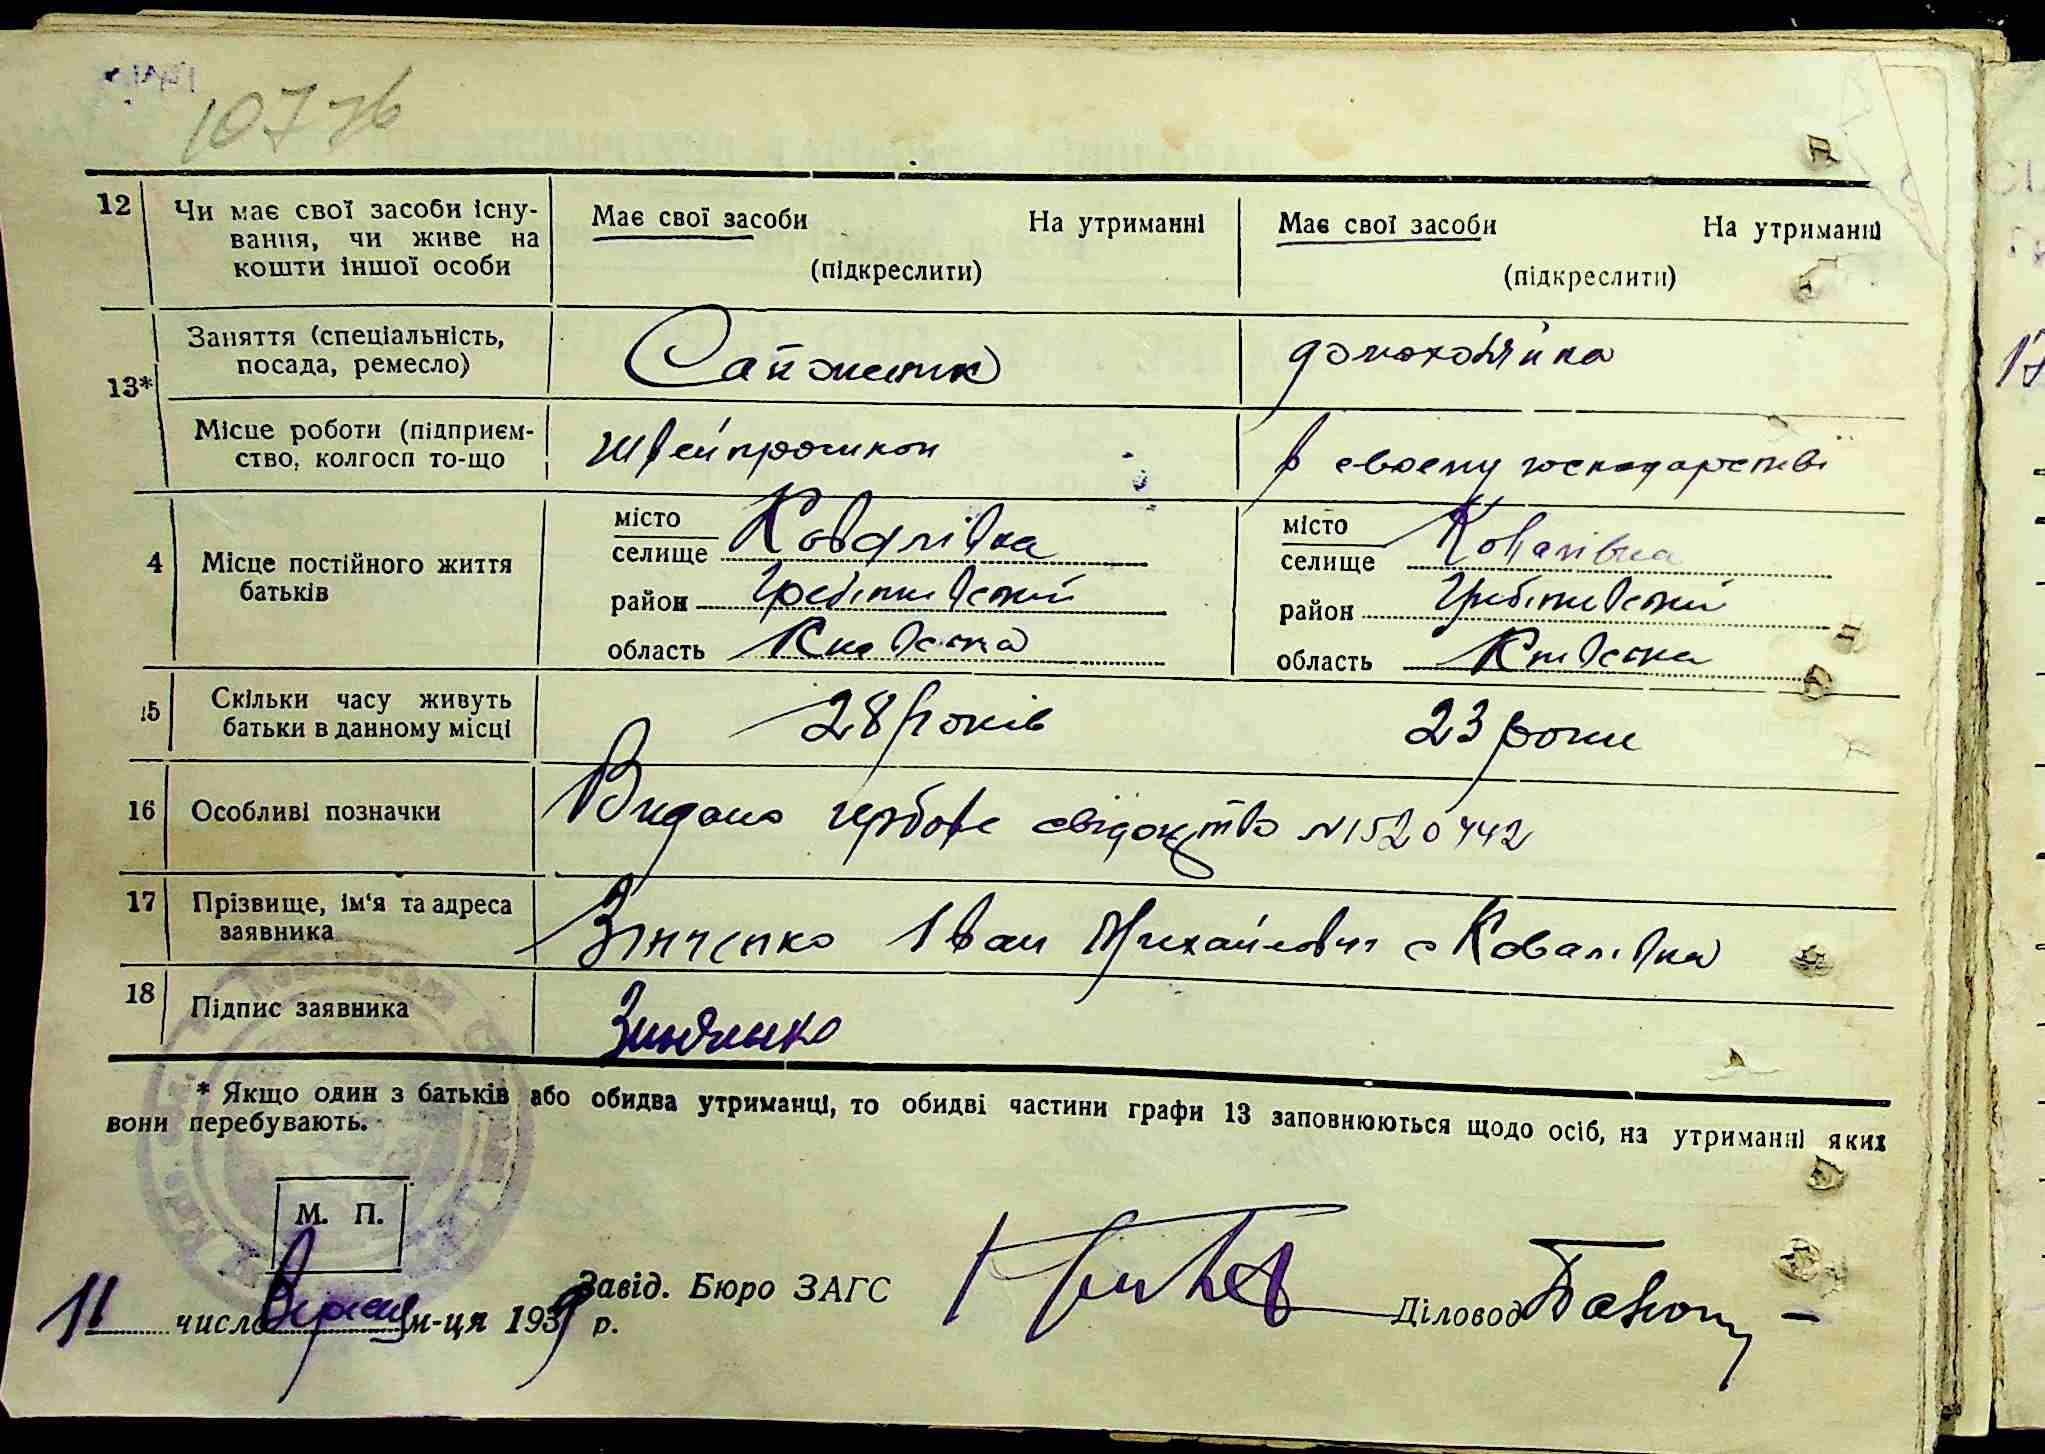 107 76
12 Чи має свої засоби існу- Має свої засоби На утриманні Має свої засоби На утриманні
вання, чи живе на
кошти іншої особи (підкреслити) (підкреслити)
13* Заняття (спеціальність, домохозяйка
посада, ремесло)
Місце роботи (підприєм- Швейпромкоп в своему господарстві
ство, колгосп то-що
4 Місце постійного життя місто Ковалівка місто Ковалівка
батьків селище селище
район Гребінківський район Гребінківський
область Київська область Київська
15 Скільки часу живуть 28 років 23 роки
батьки в данному місці
16 Особливі позначки Видано гербове свідоцтво №1520442
17 Прізвище, ім'я та адреса Зінченко Іван Михайлович с Ковалівка
заявника
18 Підпис заявника Зинченко
* Якщо один з батьків або обидва утриманці, то обидві частини графи 13 заповнюються щодо осіб, на утриманні яких
вони перебувають.
М. П.
11 число Вересня м-ця 1939 р. Завід. Бюро ЗАГС Діловод